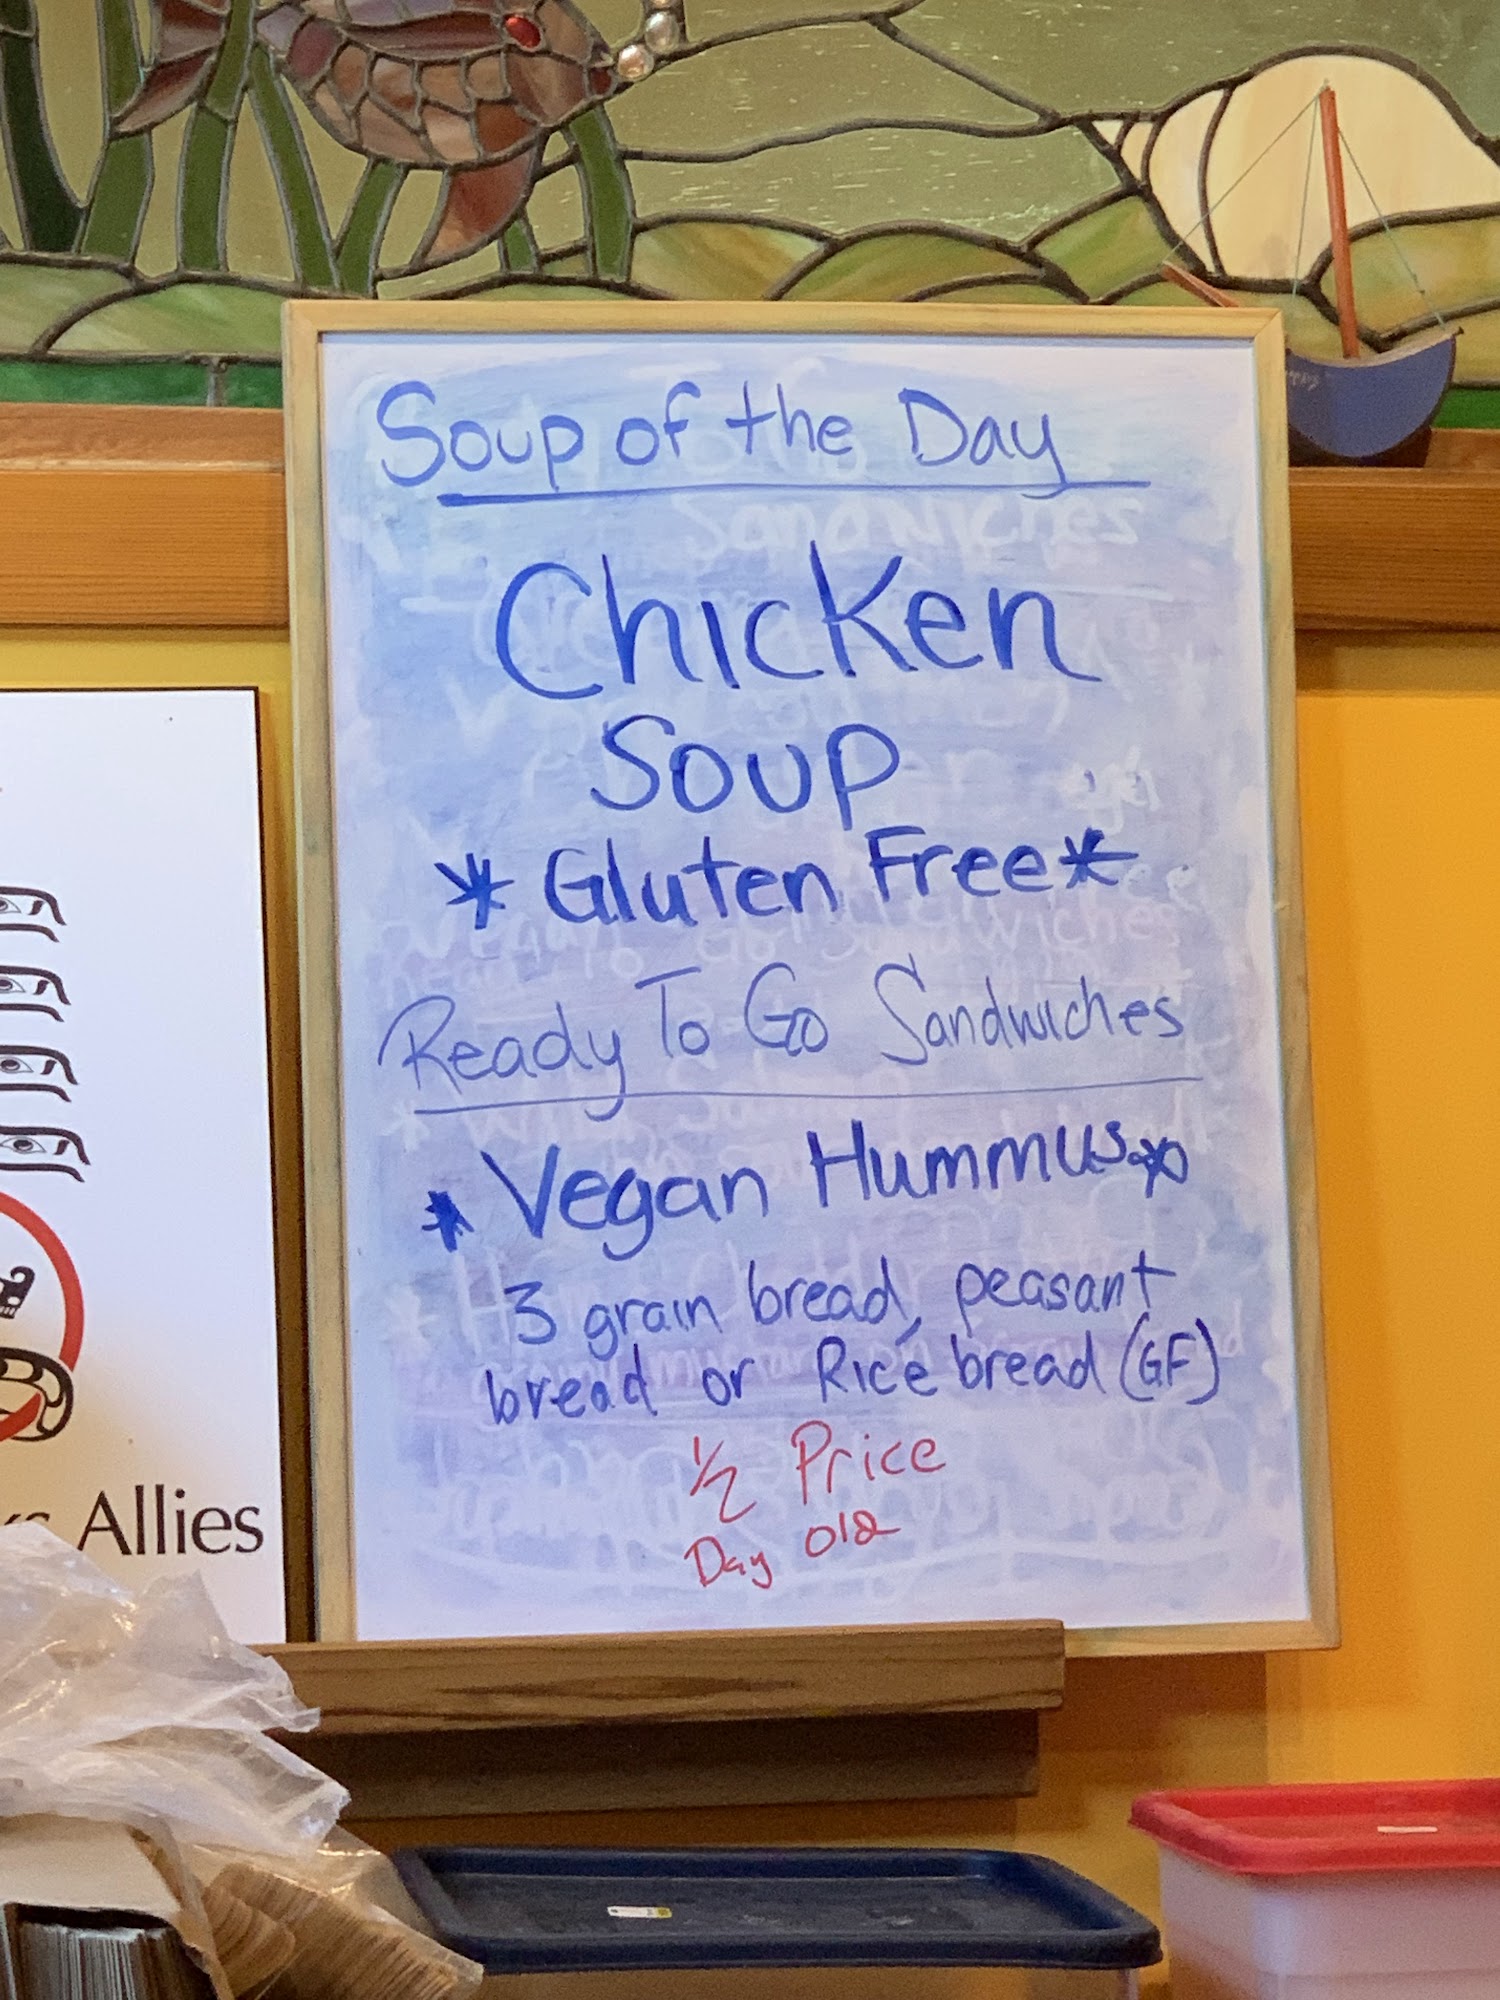 Soup of the Day
Chicken
Soup
* Gluten Free *
Ready To Go Sandwiches
* Vegan Hummus *
3 grain bread, peasant
bread or Rice bread (GF)
1/2 Price
Day old
Allies